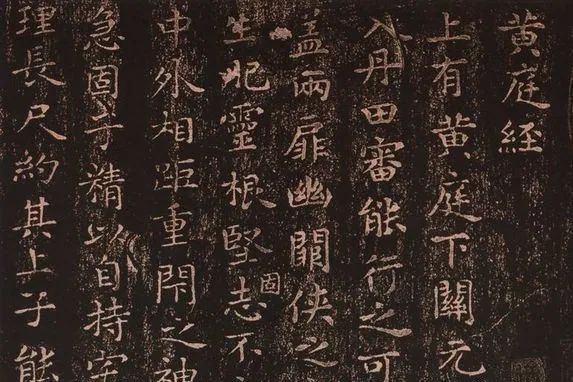 黄庭経
上有黄庭下關元
入丹田審能行之可
盖兩扉幽關侠之
生肥靈根堅固志不
中外相距重閇之神
急固子精以自持宅
理長尺約其上子能